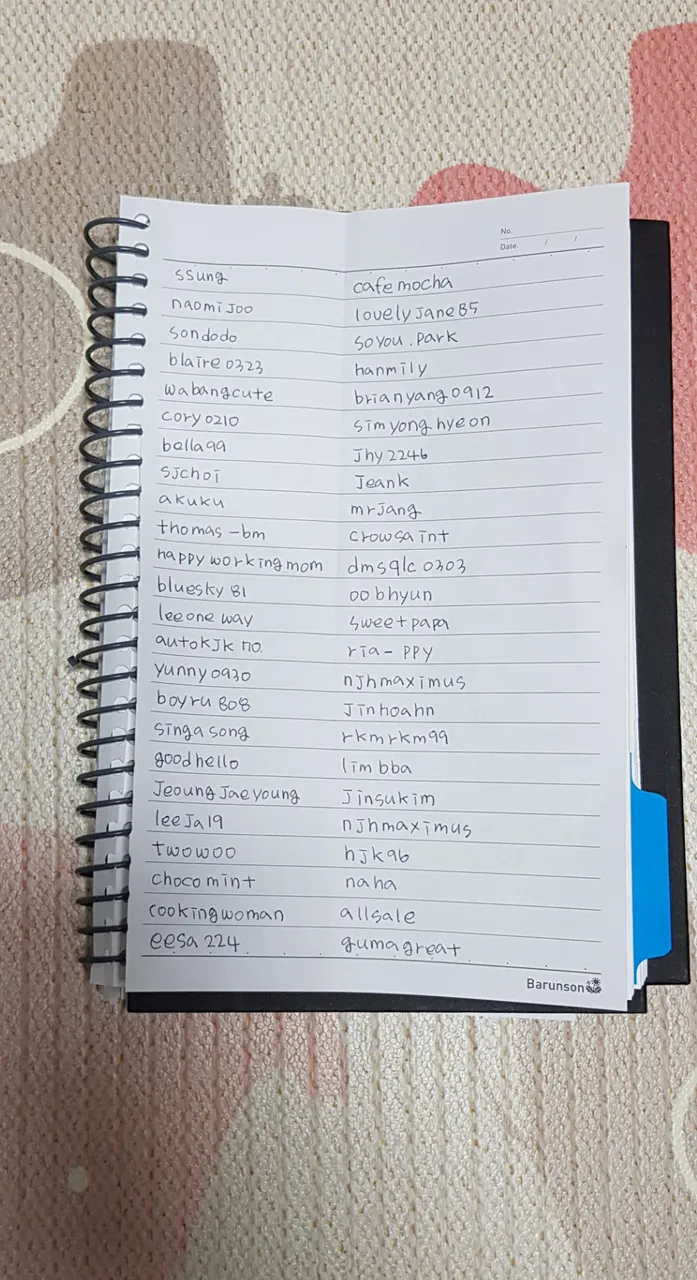 No.
Date. / /
ssung cafe mocha
naomi Joo lovely Jane 85
sondodo soyou.park
blaire 0323 hanmily
wabangcute brianyang 0912
cory 0210 simyong hyeon
bella99 Jhy 2246
sjchoi Jeank
akuku mrJang
thomas-bm crowsaint
happy workingmom dmsqlc 0303
bluesky 81 oobhyun
leeone way sweetpapa
autokJk no. ria-ppy
yunny0930 njhmaximus
boyru 808 Jinhoahn
singa song rkmrkm99
goodhello limbba
Jeoung Jaeyoung Jinsukim
leeJa19 njhmaximus
twowoo hjk96
choco mint naha
cookingwoman allsale
eesa 224 gumagreat
Barunson